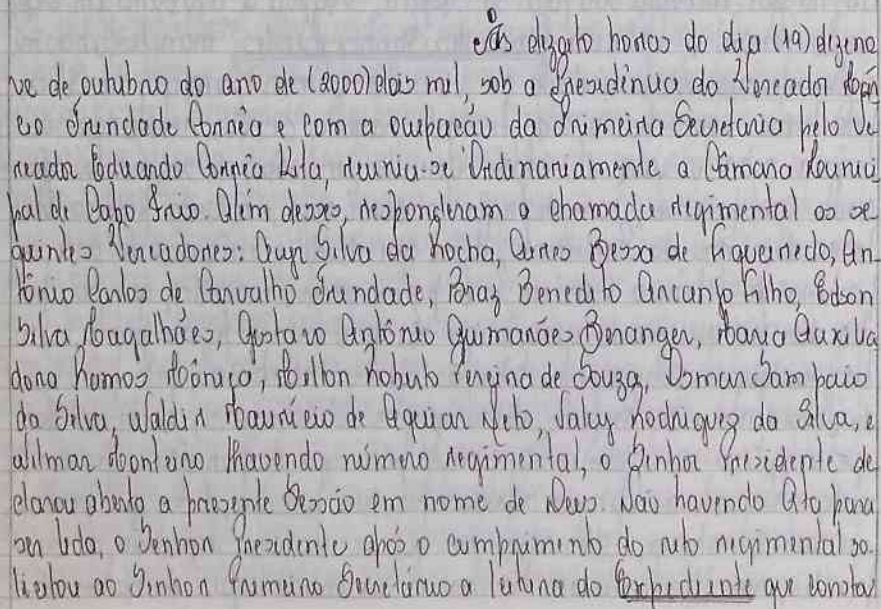 Às dezoito horas do dia (19) dezeno
ve de outubro do ano de (2000) dois mil, sob a Presidência do Vereador
Trindade Corrêa e com a ocupação da Primeira Secretaria pelo Ve
reador Eduardo Corrêa Kita, reuniu-se Ordinariamente a Câmara Munici
pal de Cabo Frio. Além desses, responderam a chamada regimental os se
guintes Vereadores: Silva da Rocha, Aires Bessa de Figueiredo, An-
tônio Carlos de Carvalho Trindade, Braz Benedito Arcanjo Filho, Edson
Silva Magalhães, Gustavo Antônio Guimarães Beranger, Maria Auxilia
dora Ramos Mônica, Milton Roberto Pereira de Souza, Osman Sampaio
da Silva, Waldir Maurício de Aguiar Neto, Valcy Rodrigues da Silva, e
Wilmar Monteiro. Havendo número regimental, o Senhor Presidente de
clarou aberta a presente Sessão em nome de Deus. Não havendo Ata para
ser lida, o Senhor Presidente após o cumprimento do rito regimental so-
licitou ao Senhor Primeiro Secretário a leitura do Expediente que consta